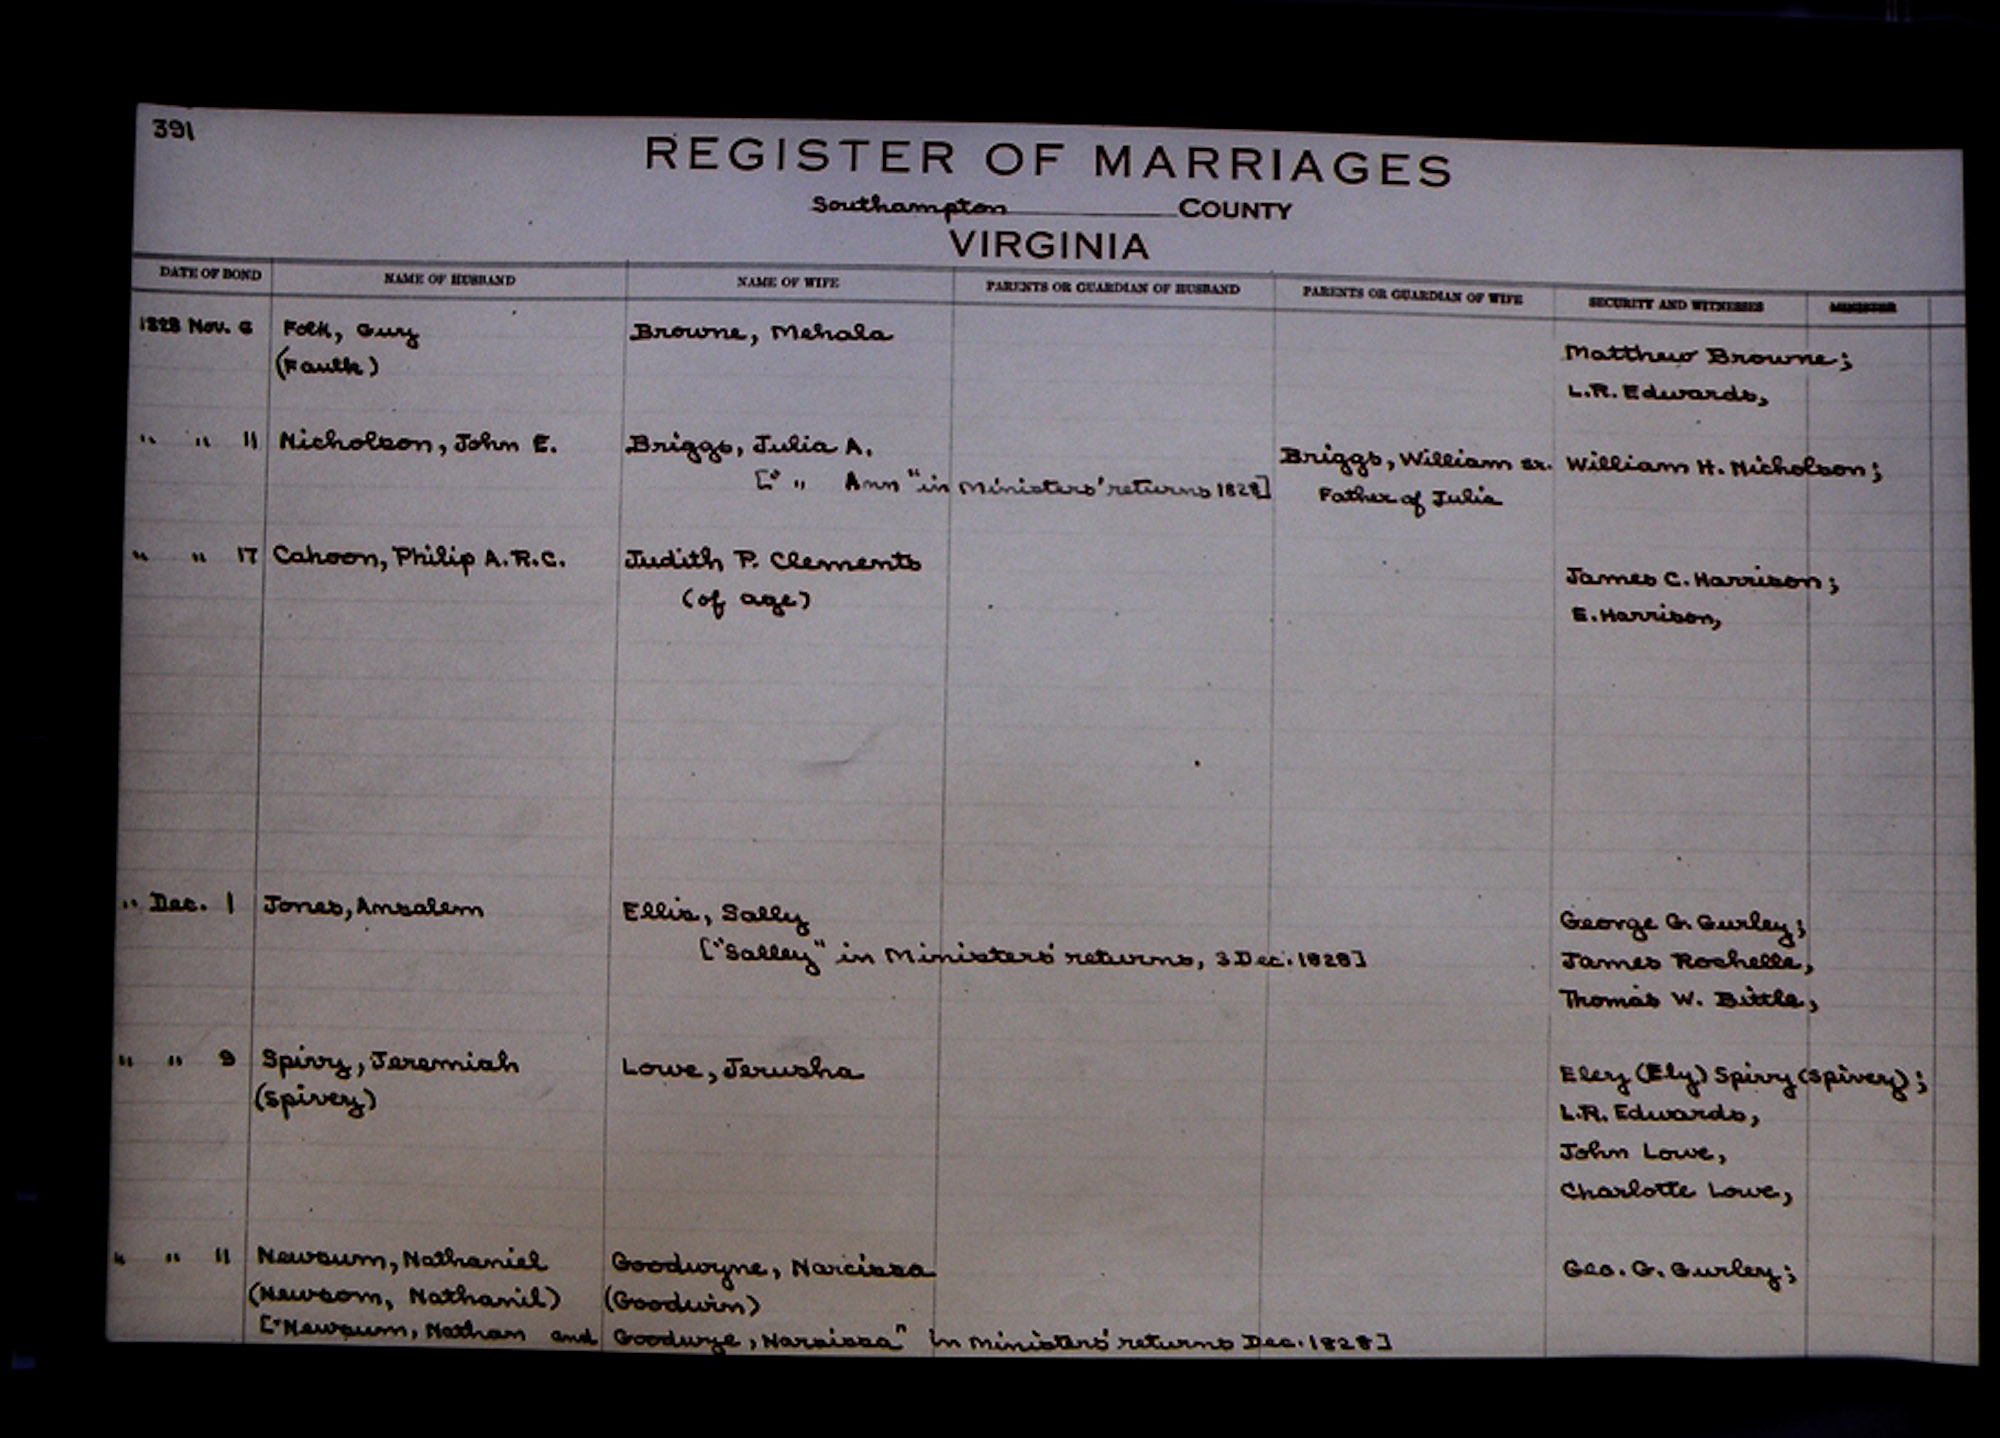 391
REGISTER OF MARRIAGES
Southampton COUNTY
VIRGINIA
DATE OF BOND NAME OF HUSBAND NAME OF WIFE PARENTS OR GUARDIAN OF HUSBAND PARENTS OR GUARDIAN OF WIFE SECURITY AND WITNESSES MINISTER
1828 Nov. 6 Folk, Guy Browne, Mehala
(Faulk) Matthew Browne;
L.R. Edwards,
" " 11 Nicholson, John E. Briggs, Julia A. Briggs, William sr. William H. Nicholson;
[" " Ann" in Ministers' returns 1828] Father of Julia
" " 17 Cahoon, Philip A.R.C. Judith P. Clements James C. Harrison;
(of age) E. Harrison,
" Dec. 1 Jones, Amsalem Ellis, Sally George G. Gurley;
["Salley" in Ministers' returns, 3 Dec. 1828] James Rochelle,
Thomas W. Bittle,
" " 9 Spivy, Jeremiah Lowe, Jerusha Eley (Ely) Spivy (Spivey);
(Spivey) L.R. Edwards,
John Lowe,
Charlotte Lowe,
" " 11 Newsum, Nathaniel Goodwyne, Narcissa Geo. G. Gurley;
(Newsom, Nathanil) (Goodwin)
["Newsum, Nathan and Goodwye, Narsissa" in Ministers' returns Dec. 1828]